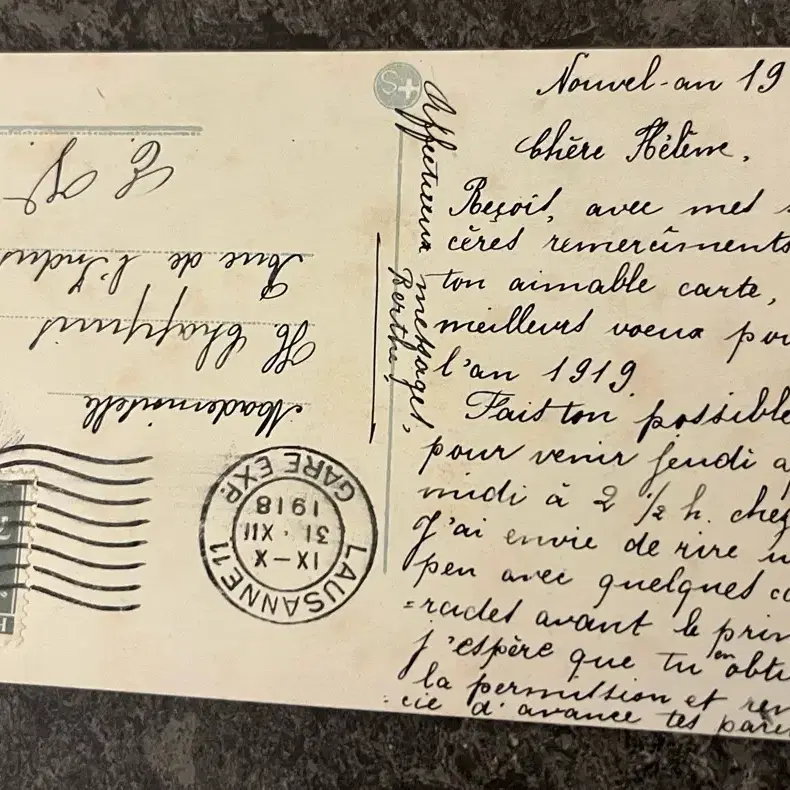 Nouvel-an 19
Chère Hélène,
Reçois, avec mes s
cères remerciments
ton aimable carte,
meilleurs voeux pou
l'an 1919.
Fais ton possible
pour venir jeudi a
midi à 2 1/2 h. chez
J'ai envie de rire u
peu avec quelques ca
=rades avant le prin
j'espère que tu en obti
la permission et rem
:cie d'avance tes paren
Affectueux messages,
Berthe.
LAUSANNE 11
IX-X
31.XII
1918
GARE EXP.
Mademoiselle
H. Chappuis
Rue de l'Indus
E. V.
S+